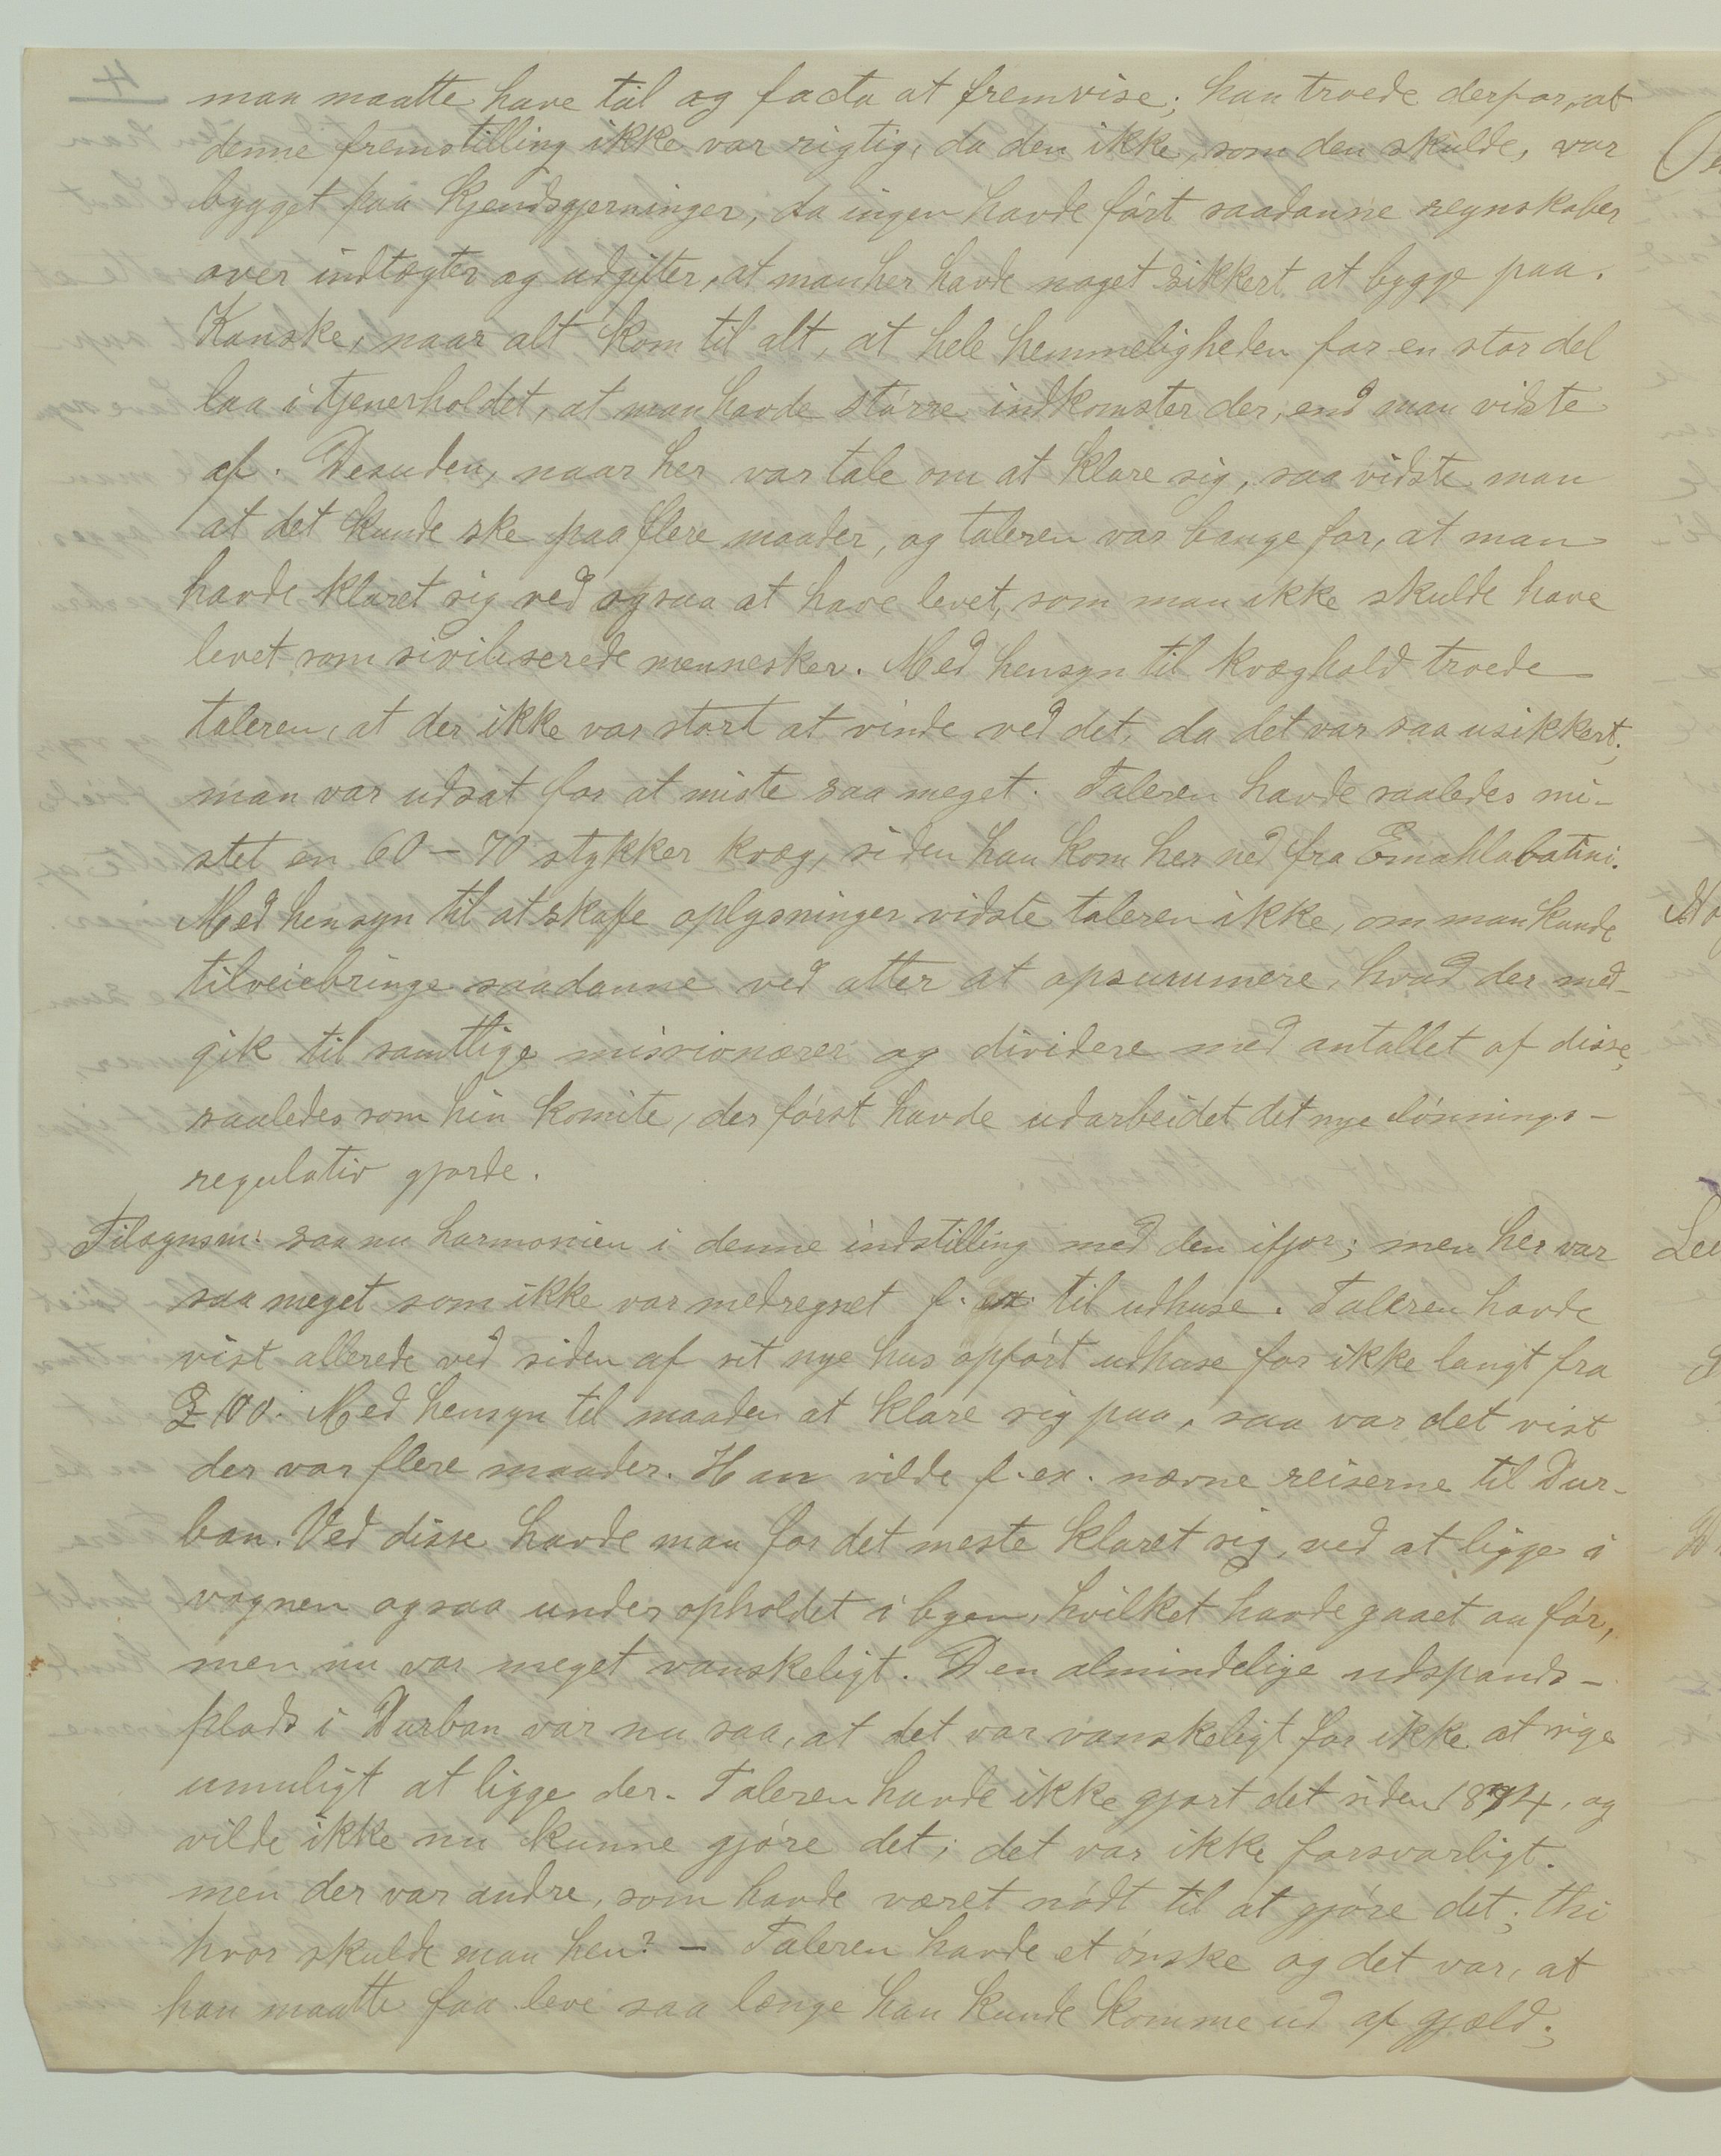 man maatte have tal og facta at fremvise; han troede derfor, at
denne fremstilling ikke var rigtig, da den ikke, som den skulde, var
bygget paa kjendsgjerninger, da ingen havde ført saadanne regnskaber
over indtægter og udgifter, at man her havde noget sikkert at bygge paa.
Kanske, naar alt kom til alt, at hele hemmeligheden for en stor del
laa i tjenerholdet, at man havde større indkomster der, end man vidste
af. Desuden, naar her var tale om at klare sig, saa vidste man
at det kunde ske paa flere maader, og taleren var bange for, at man
havde klaret sig ved ogsaa at have levet, som man ikke skulde have
levet som siviliserede mennesker. Med hensyn til kvæghold troede
taleren, at der ikke var stort at vinde ved det, da det var saa usikkert;
man var udsat for at miste saa meget. Taleren havde saaledes mi-
stet en 60 – 70 stykker kvæg, siden han kom her ned fra Emahlabatini.
Med hensyn til at skaffe oplysninger vidste taleren ikke, om man kunde
tilveiebringe saadanne ved atter at opsummere, hvad der med-
gik til samtlige missionærer og dividere med antallet af disse,
saaledes som hin komite, der først havde udarbeidet det nye lønnings-
regulativ gjorde.
Tilsynsm: saa nu harmonien i denne indstilling med den ifjor; men her var
saa meget som ikke var medregnet f. ex. til udhuse. Taleren havde
vist allerede ved siden af sit nye hus opført udhuse for ikke langt fra
£ 100. Med hensyn til maaden at klare sig paa, saa var det vist
der var flere maader. Han vilde f. ex. nævne reiserne til Dur-
ban. Ved disse havde man for det meste klaret sig, ved at ligge i
vognen ogsaa under opholdet i byen, hvilket havde gaaet an før,
men nu var meget vanskeligt. Den almindelige udspands-
plads i Durban var nu saa, at det var vanskeligt for ikke at sige
umuligt at ligge der. Taleren havde ikke gjort det siden 1874, og
vilde ikke nu kunne gjøre det; det var ikke forsvarligt.
men der var andre, som havde været nødt til at gjøre det; thi
hvor skulde man hen? – Taleren havde et ønske og det var, at
han maatte faa leve saa længe han kunde komme ud af gjæld;